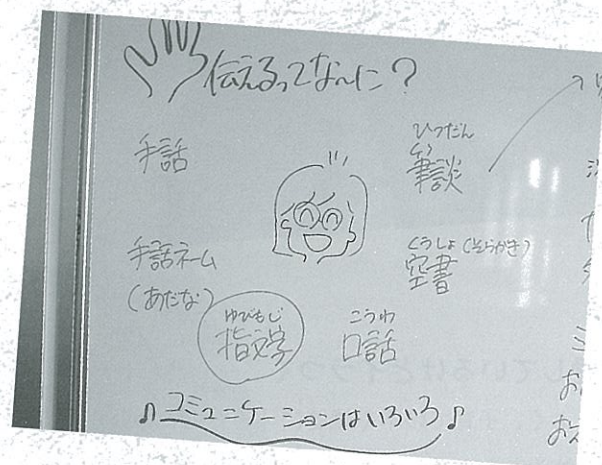 伝えるってな~に?
手話
ひつだん
筆談
手話ネーム
(あだな)
くうしょ(そらがき)
空書
ゆびもじ
指文字
こうわ
口話
♫コミュニケーションはいろいろ♪